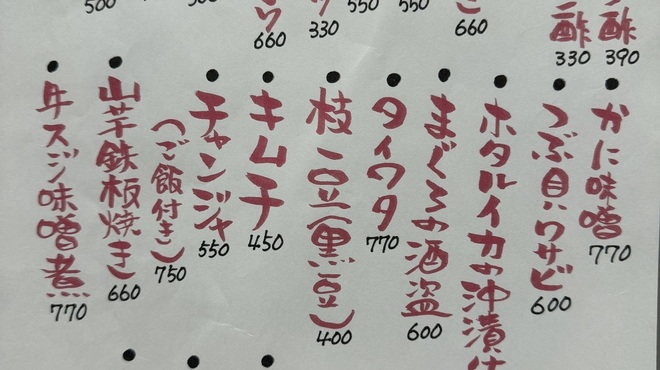 酢
390
酢
330
660
550
550
330
660
500
かに味噌
770
つぶ貝ワサビ
600
ホタルイカの沖漬け
まぐろの酒盗
600
タイワタ
770
枝豆(黒豆)
400
キムチ
450
チャンジャ
550
(ご飯付き)
750
山芋鉄板焼き
660
牛スジ味噌煮
770